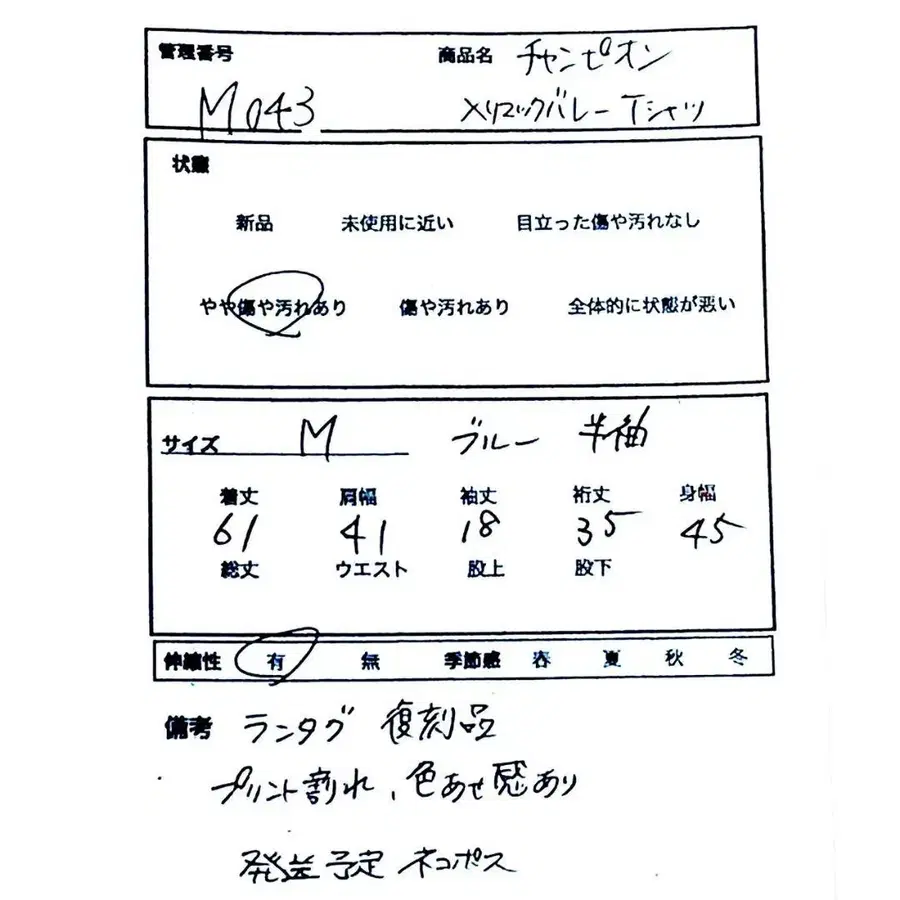 管理番号 商品名 チャンピオン
M043 メリマックバレー Tシャツ
状態
新品 未使用に近い 目立った傷や汚れなし
やや傷や汚れあり 傷や汚れあり 全体的に状態が悪い
サイズ M ブルー 半袖
着丈 肩幅 袖丈 裄丈 身幅
61 41 18 35 45
総丈 ウエスト 股上 股下
伸縮性 有 無 季節感 春 夏 秋 冬
備考 ランタグ 復刻品
プリント割れ、色あせ感あり
発送予定 ネコポス